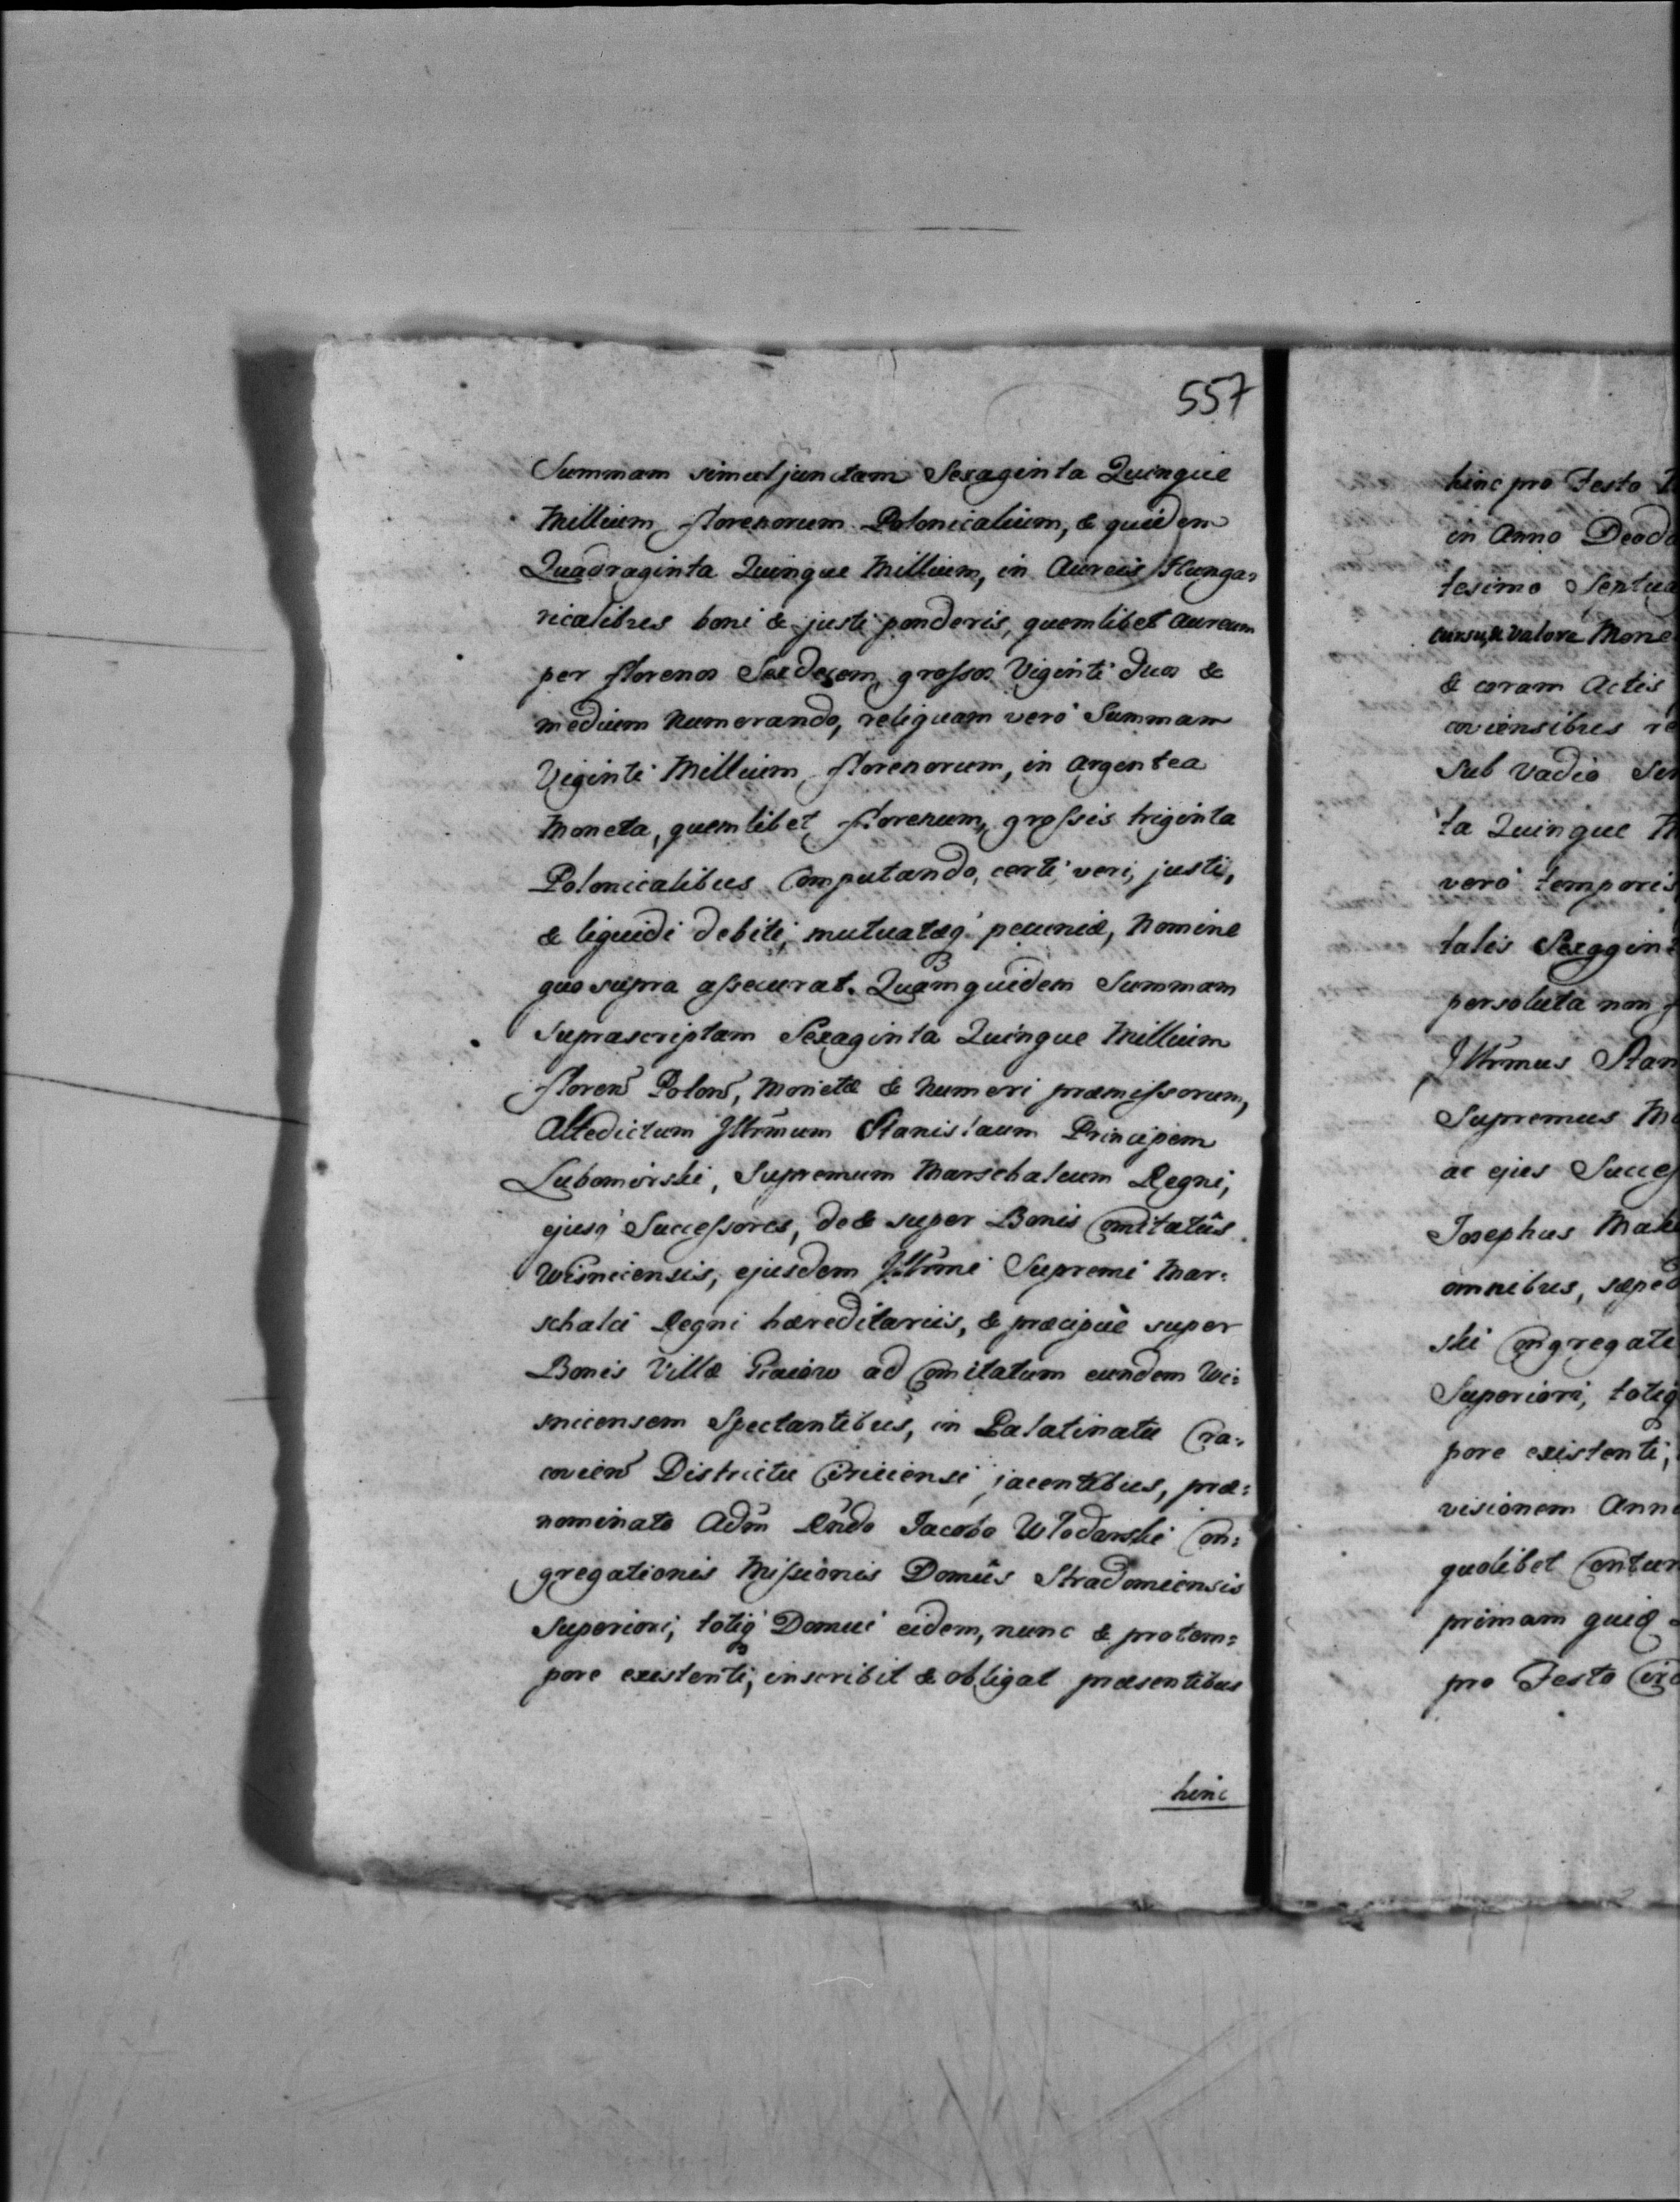 557
Summam simul junctam Sexaginta Quinque
Millium florenorum Polonicalium, & quidem
Quadraginta Quinque Millium, in Aureis Hunga=
ricalibus boni & justi ponderis, quemlibet aureum
per florenos Sexdecem, grossos Viginti duos &
medium numerando, reliquam verò Summam
Viginti Millium florenorum, in argentea
Moneta, quemlibet florenum, grossis triginta
Polonicalibus Computando, certi veri, justi,
& liquidi debiti, mutuatæq́ pecuniæ, Nomine
quo supra assecurat. Quam quidem Summam
suprascriptam Sexaginta Quinque Millium
floren̄ Polon̄, Monetæ & Numeri præmissorum,
Altedictum Jllr̄mum Stanislaum Principem
Lubomirski, Supremum Marschalcum Regni,
ejusq́ Successores, de & super Bonis Comitatûs
Wisniciensis, ejusdem Jllr̄mi Supremi Mar=
schalci Regni hæreditariis, & præcipuè super
Bonis Villæ ad Comitatum eundem Wi=
snicensem Spectantibus, in Palatinatu Cra=
covien̄ Districtu jacentibus, præ=
nominato Adm̄ Rn̄do Jacobo Włodarski Con=
gregationis Missionis Domûs Stradomiensis
Superiori, totiq́ Domui eidem, nunc & protem=
pore existenti, inscribit & obligat præsentibus
hinc
hinc pro Festo
in Anno Deodo
tesimo Septua
cursu, & valore Mone
& coram Actis
coviensibus re
sub vadio Sex
ta Quinque M
verò temporis
talis Sexagint
persoluta non
Jllr̄mus Stan
Supremus Ma
ac ejus Succes
Josephus Mak
omnibus, sæped
ski Congregati
Superiori, totiq́
pore existenti,
visionem Anno
quolibet Centum
primam quid
pro Festo